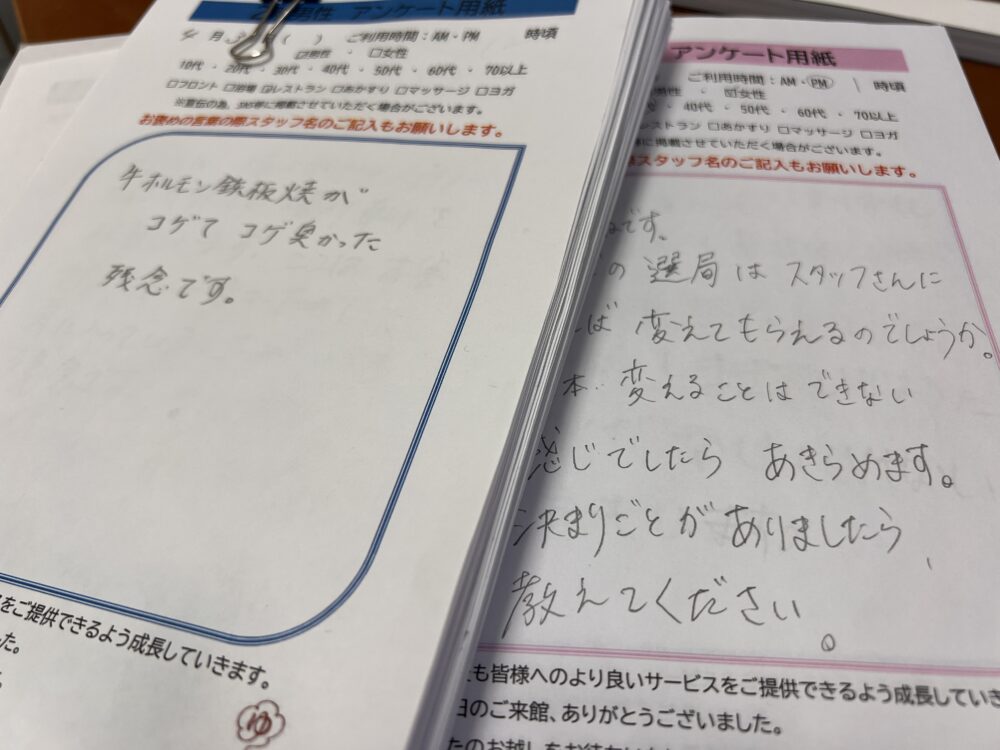 男性 アンケート用紙
月 ( ) ご利用時間：AM・PM 時頃
男性 ・ □女性
10代 ・ 20代 ・ 30代 ・ 40代 ・ 50代 ・ 60代 ・ 70以上
□フロント □浴場 ☑レストラン □あかすり □マッサージ □ヨガ
※宣伝の為、SNS等に掲載させていただく場合がございます。
お褒めの言葉の際スタッフ名のご記入もお願いします。
牛ホルモン鉄板焼が
コゲて コゲ臭かった
残念です。
をご提供できるよう成長していきます。
した。
ゆ
アンケート用紙
ご利用時間：AM・PM 時頃
男性 ・ ☑女性
・ 40代 ・ 50代 ・ 60代 ・ 70以上
レストラン □あかすり □マッサージ □ヨガ
に掲載させていただく場合がございます。
スタッフ名のご記入もお願いします。
です。
の 選局は スタッフさんに
ば 変えてもらえるのでしょうか。
本 変えることは できない
感じでしたら あきらめます。
決まりごとが ありましたら、
教えてください。
も皆様へのより良いサービスをご提供できるよう成長していき
日のご来館、ありがとうございました。